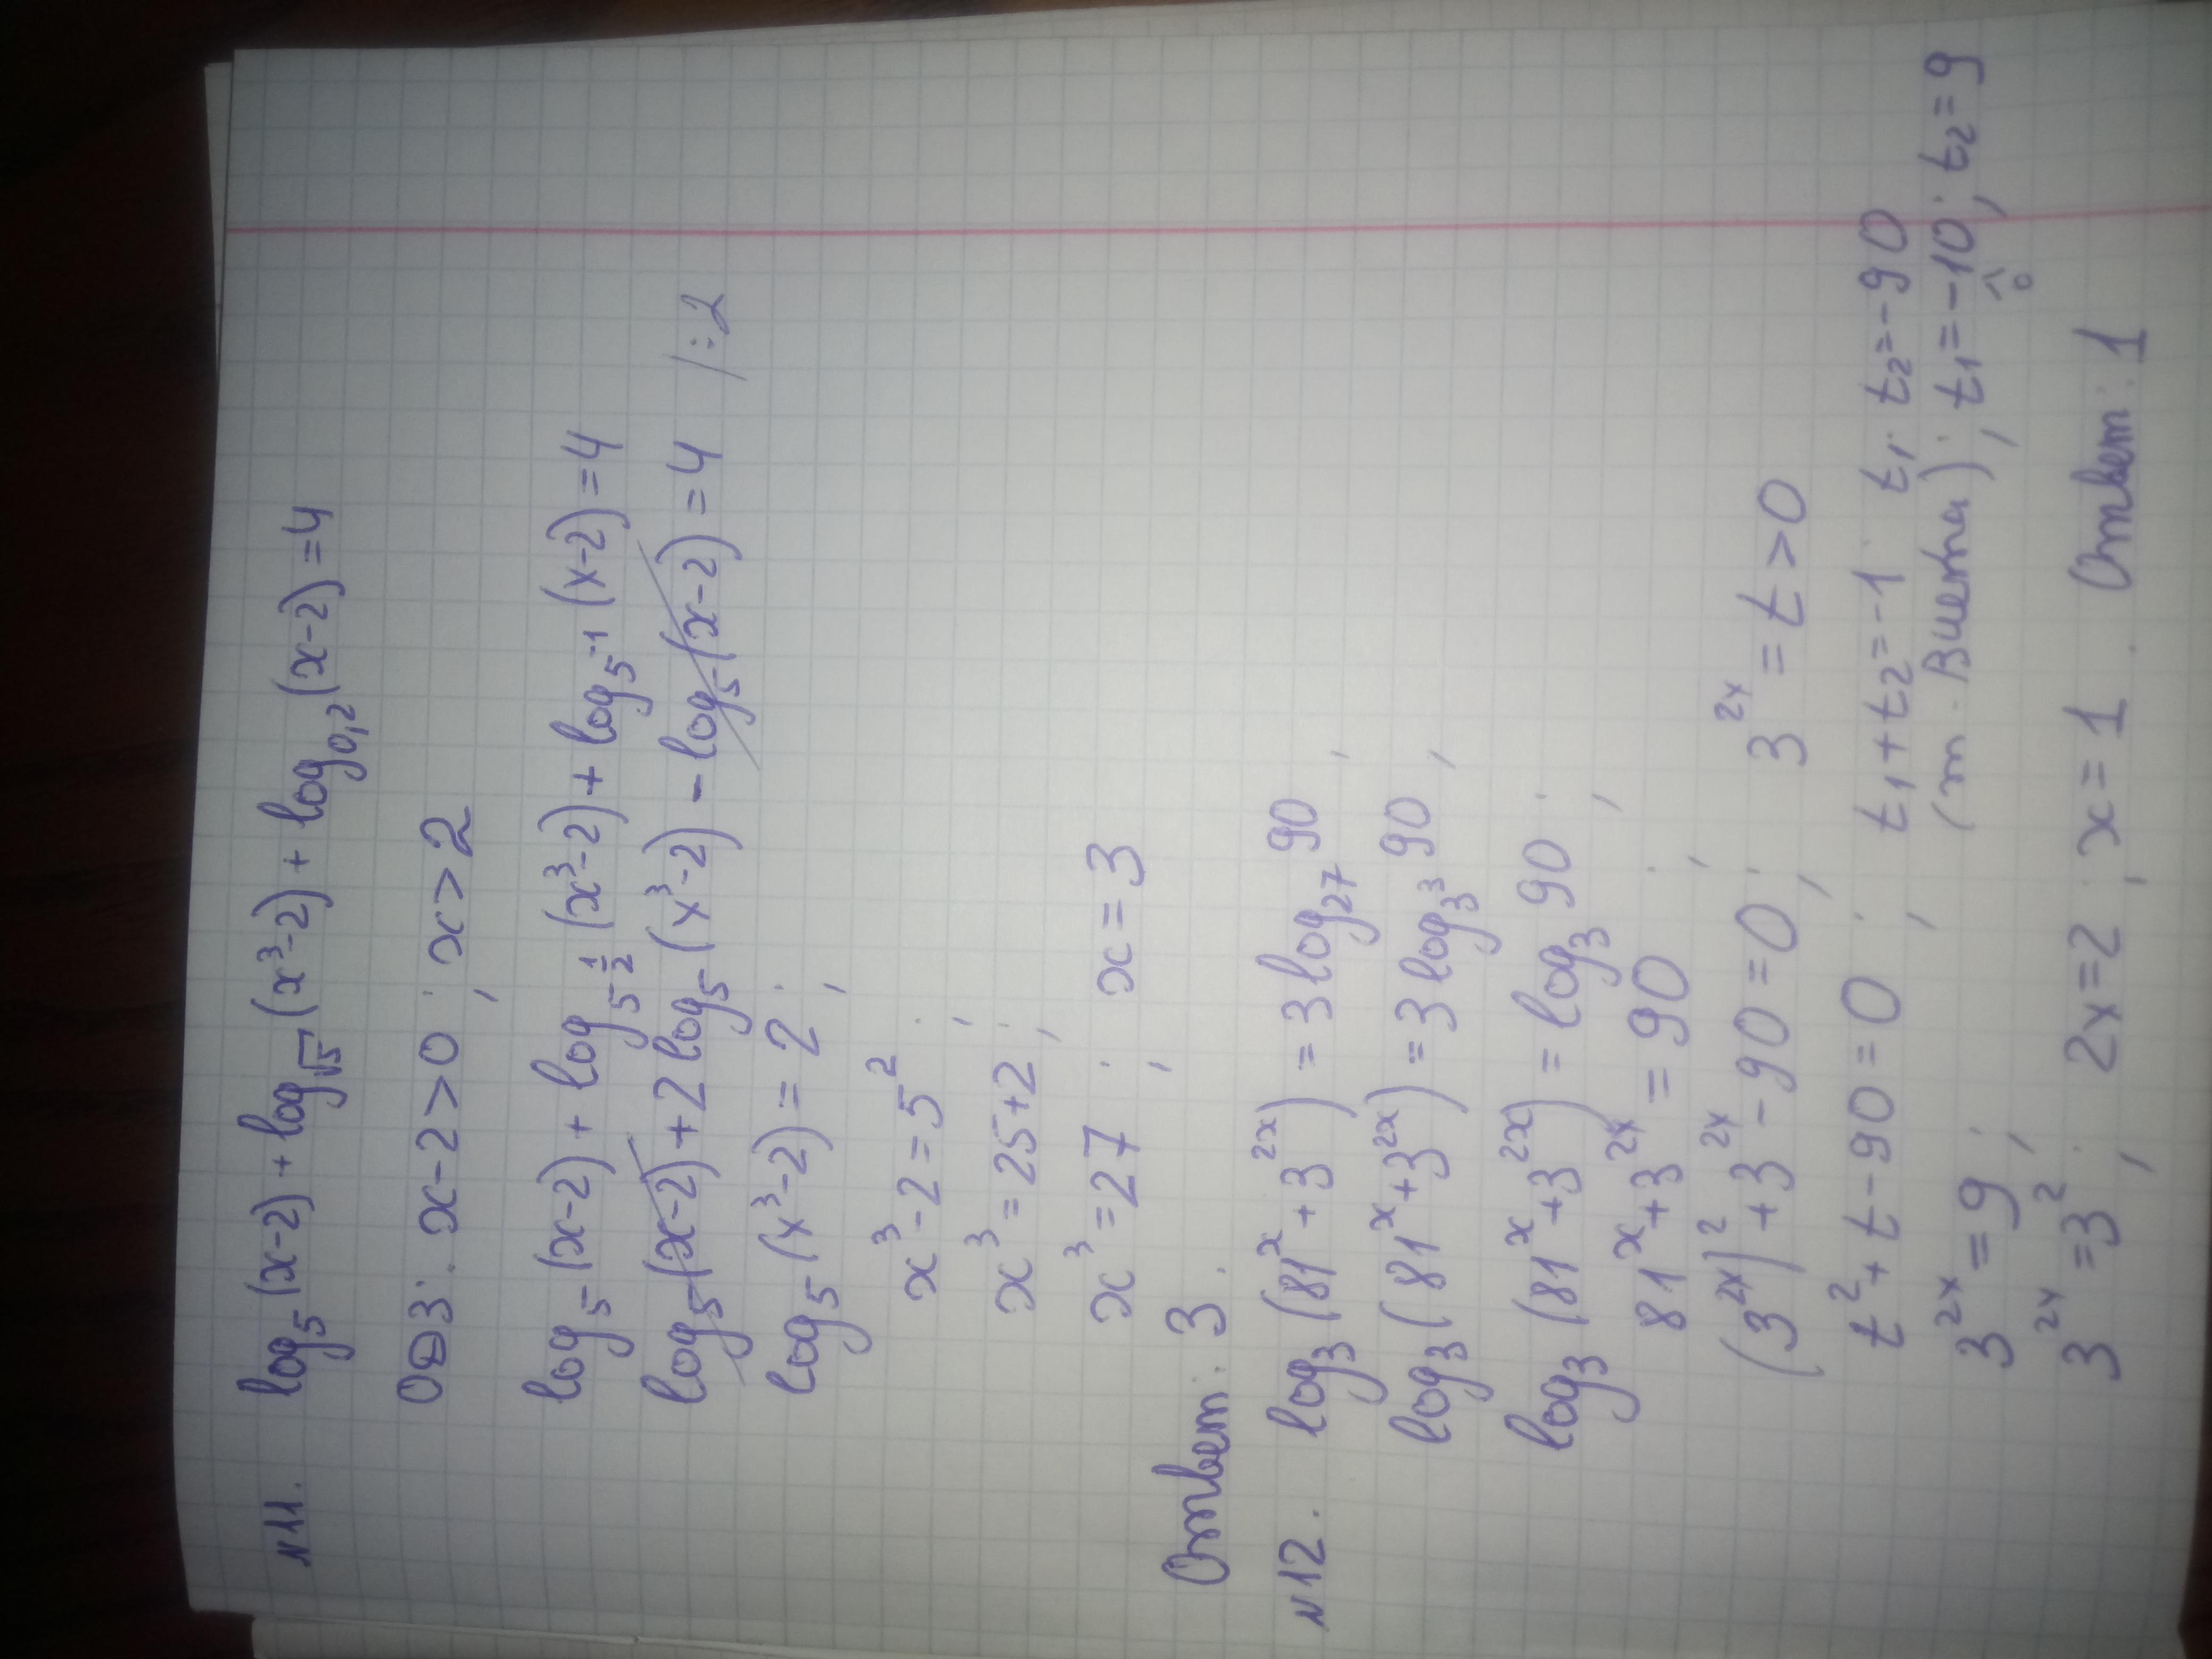 N11. log₅(x-2) + log_√5(x³-2) + log₀,₂(x-2) = 4
ОДЗ: x-2>0; x>2
log₅(x-2) + log_5^(1/2)(x³-2) + log_5^(-1)(x-2) = 4
log₅(x-2) + 2log₅(x³-2) - log₅(x-2) = 4 /:2
log₅(x³-2) = 2;
x³-2 = 5²;
x³ = 25+2;
x³ = 27; x = 3
Ответ: 3.
N12. log₃(81ˣ+3²ˣ) = 3log₂₇90;
log₃(81ˣ+3²ˣ) = 3log_3³ 90;
log₃(81ˣ+3²ˣ) = log₃90;
81ˣ+3²ˣ = 90;
(3²ˣ)²+3²ˣ-90=0; 3²ˣ = t > 0
t²+t-90=0; t₁+t₂=-1 t₁·t₂=-90
3²ˣ = 9; (т. Виета); t₁=-10; t₂=9
<0
3²ˣ = 3²; 2x=2; x=1. Ответ: 1